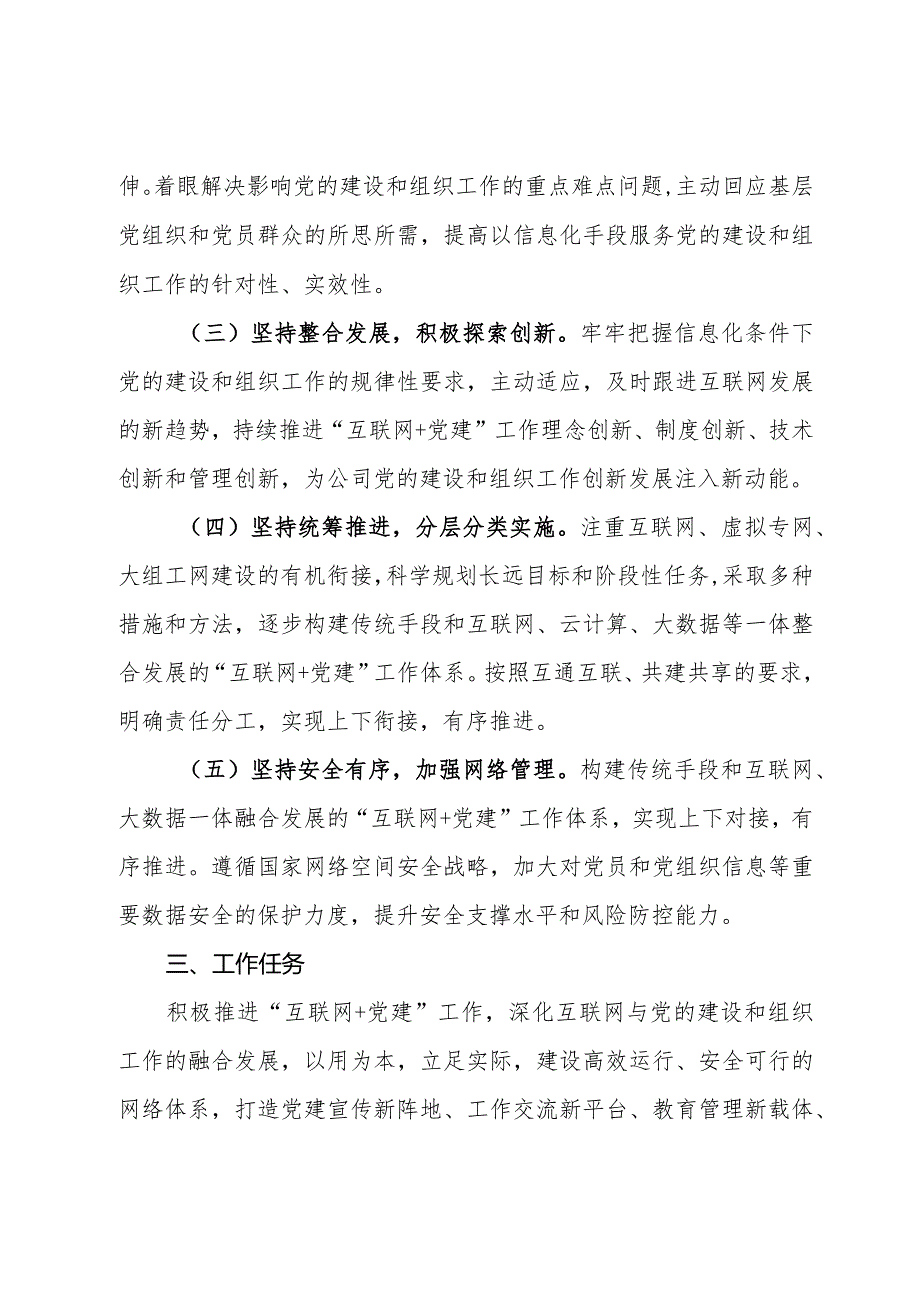 伸。着眼解决影响党的建设和组织工作的重点难点问题,主动回应基层
党组织和党员群众的所思所需，提高以信息化手段服务党的建设和组
织工作的针对性、实效性。
（三）坚持整合发展，积极探索创新。牢牢把握信息化条件下
党的建设和组织工作的规律性要求，主动适应，及时跟进互联网发展
的新趋势，持续推进“互联网+党建”工作理念创新、制度创新、技术
创新和管理创新，为公司党的建设和组织工作创新发展注入新动能。
（四）坚持统筹推进，分层分类实施。注重互联网、虚拟专网、
大组工网建设的有机衔接,科学规划长远目标和阶段性任务,采取多种
措施和方法，逐步构建传统手段和互联网、云计算、大数据等一体整
合发展的“互联网+党建”工作体系。按照互通互联、共建共享的要求，
明确责任分工，实现上下衔接，有序推进。
（五）坚持安全有序，加强网络管理。构建传统手段和互联网、
大数据一体融合发展的“互联网+党建”工作体系，实现上下对接，有
序推进。遵循国家网络空间安全战略，加大对党员和党组织信息等重
要数据安全的保护力度，提升安全支撑水平和风险防控能力。
三、工作任务
积极推进“互联网+党建”工作，深化互联网与党的建设和组织
工作的融合发展，以用为本，立足实际，建设高效运行、安全可行的
网络体系，打造党建宣传新阵地、工作交流新平台、教育管理新载体、